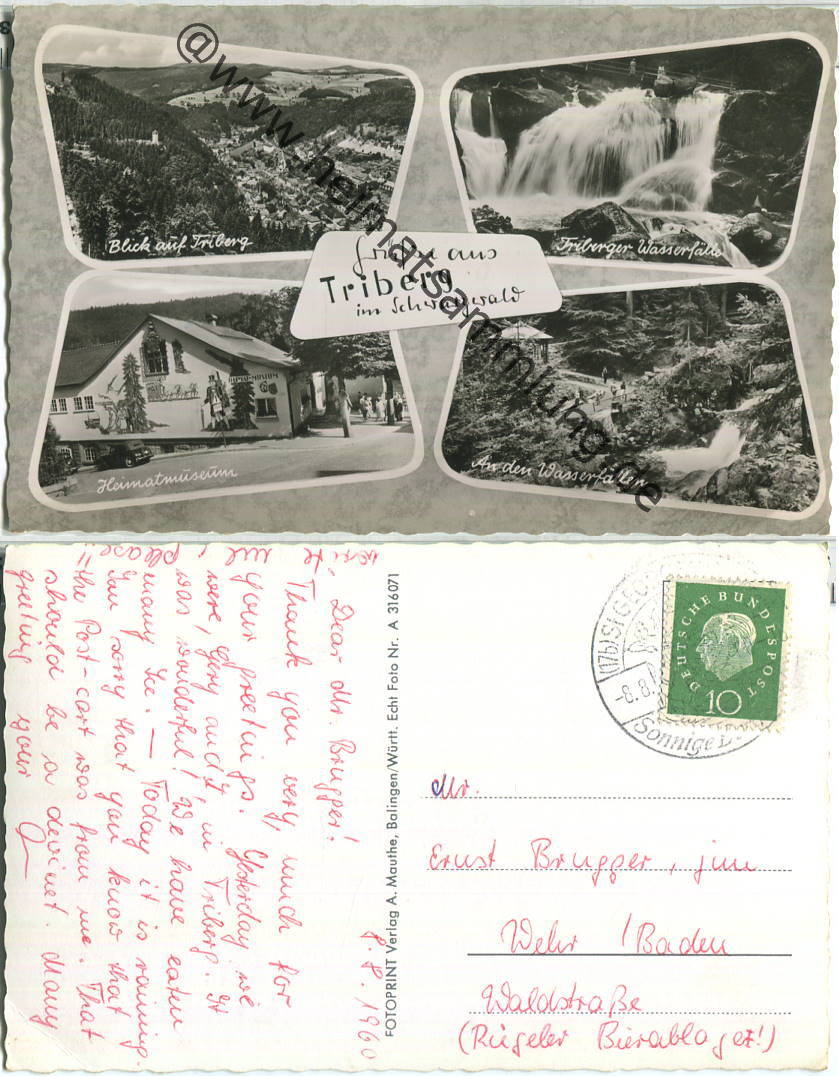 @www.heimatsammlung.de
Blick auf Triberg
Triberger Wasserfälle
Grüße aus
Triberg
im Schwarzwald
Heimatmuseum
An den Wasserfällen
8.8.1960
Dear Mr. Brugger!
Thank you very much for
your greetings. Yesterday we
were, Gery and I in Triberg. It
was wonderful! We have eaten
many Ice. — Today it is raining.
You sorry that you know that
the Post-cart was from me. That
should be a devinet. Many
greeting your
please
FOTOPRINT Verlag A. Mauthe, Balingen/Württ. Echt Foto Nr. A 316071
(17b) St
-8.8.
Sonnige
DEUTSCHE BUNDESPOST
10
Mr.
Ernst Brugger, jun
Wehr / Baden
Waldstraße
(Riegeler Bierablager!)